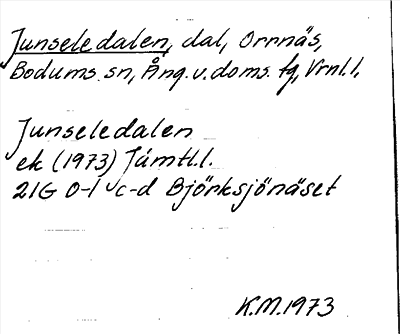 Junseledalen, dal, Orrnäs,
Bodums sn, Ång.v.doms. fg, Vrnl.l.
Junseledalen
ek (1973) Jämtl.l.
21G 0-1 c-d Björksjönäset
K.M.1973